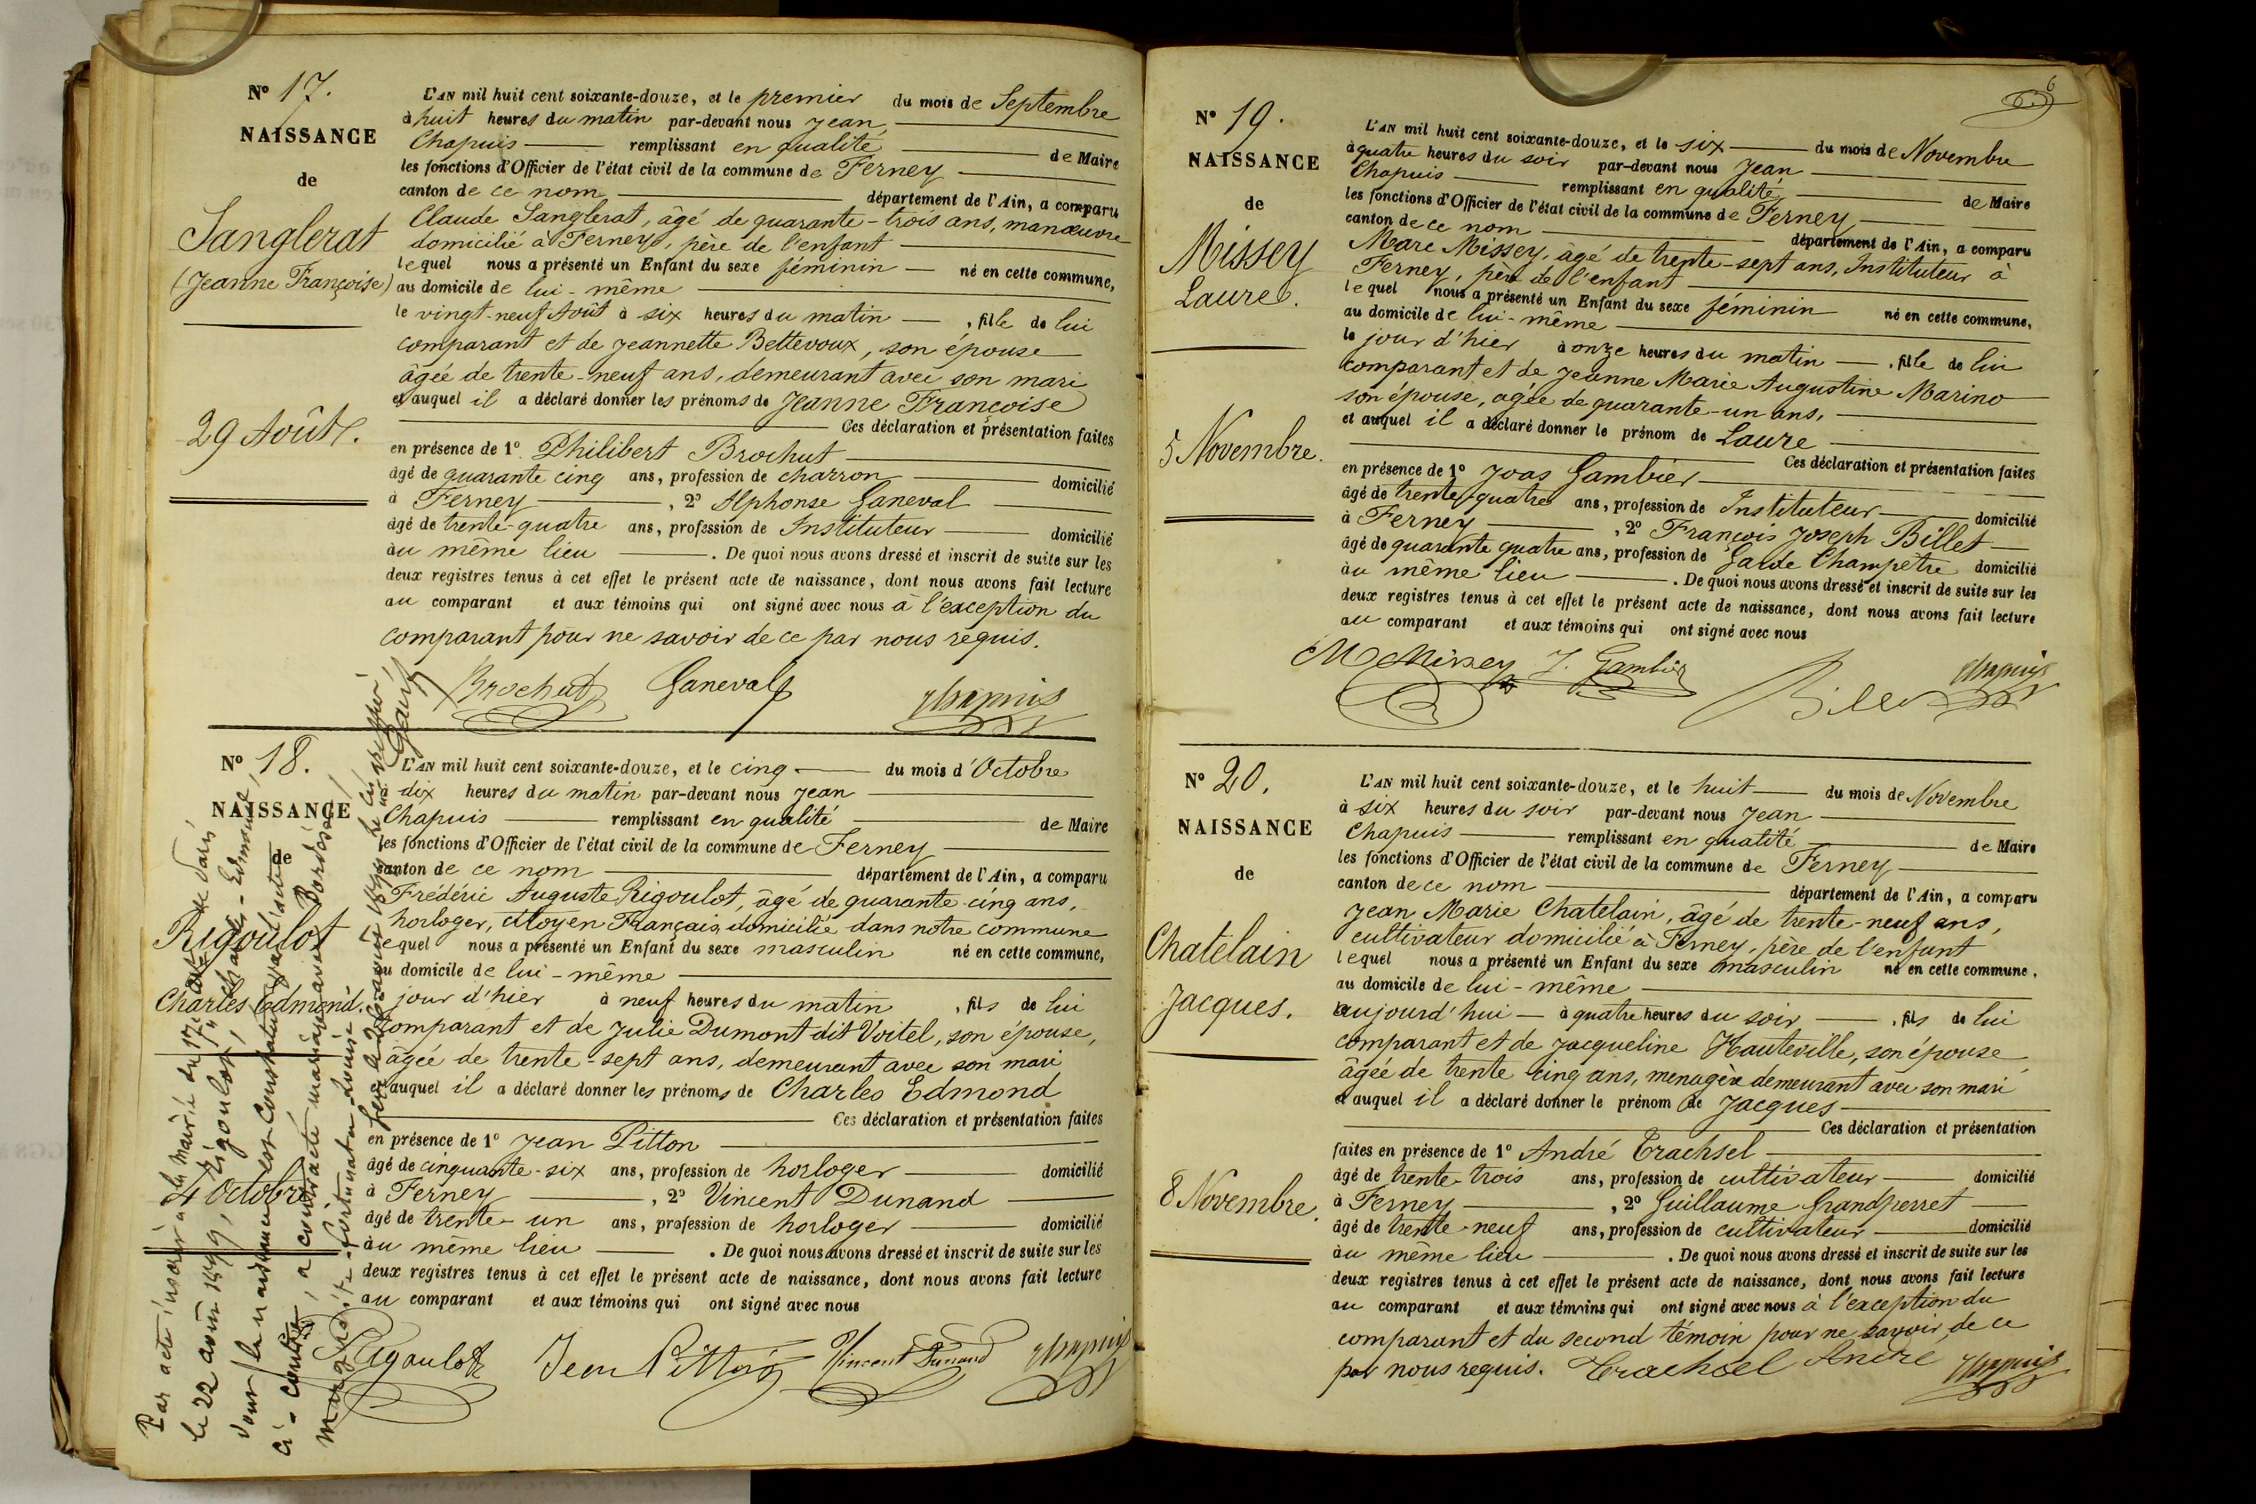 N° 17.
NAISSANCE
de
Sanglerat
(Jeanne Françoise)
29 Août.
L'AN mil huit cent soixante-douze, et le premier du mois de Septembre
à huit heures du matin par-devant nous Jean
Chapuis remplissant en qualité de Maire
les fonctions d'Officier de l'état civil de la commune de Ferney
canton de ce nom département de l'Ain, a comparu
Claude Sanglerat, âgé de quarante-trois ans, manœuvre
domicilié à Ferney, père de l'enfant
lequel nous a présenté un Enfant du sexe féminin né en cette commune,
au domicile de lui-même
le vingt-neuf Août à six heures du matin, fille de lui
comparant et de Jeannette Bettevoux, son épouse
âgée de trente-neuf ans, demeurant avec son mari
et auquel il a déclaré donner les prénoms de Jeanne Françoise
Ces déclaration et présentation faites
en présence de 1° Philibert Brochut
âgé de quarante cinq ans, profession de charron domicilié
à Ferney, 2° Alphonse Ganeval
âgé de trente-quatre ans, profession de Instituteur domicilié
au même lieu. De quoi nous avons dressé et inscrit de suite sur les
deux registres tenus à cet effet le présent acte de naissance, dont nous avons fait lecture
au comparant et aux témoins qui ont signé avec nous à l'exception du
comparant pour ne savoir de ce par nous requis.
Brochut Ganeval Chapuis
N° 18.
NAISSANCE
de
Rigoulot
Charles Edmond.
4 Octobre
Par acte inscrit à la mairie du 17e arr. de Paris
le 22 avril 1899, Rigoulot, Charles-Edmond,
dont la naissance est constatée par l'acte
ci-contre, a contracté mariage avec Bordessa,
Marguerite-Fortunata-Louise
L'AN mil huit cent soixante-douze, et le cinq du mois d'Octobre
à dix heures du matin par-devant nous Jean
Chapuis remplissant en qualité de Maire
les fonctions d'Officier de l'état civil de la commune de Ferney
canton de ce nom département de l'Ain, a comparu
Frédéric Auguste Rigoulot, âgé de quarante-cinq ans,
horloger, citoyen Français, domicilié dans notre commune
lequel nous a présenté un Enfant du sexe masculin né en cette commune,
au domicile de lui-même
le jour d'hier à neuf heures du matin, fils de lui
comparant et de Julie Dumont dit Voitel, son épouse,
âgée de trente-sept ans, demeurant avec son mari
et auquel il a déclaré donner les prénoms de Charles Edmond
Ces déclaration et présentation faites
en présence de 1° Jean Pitton
âgé de cinquante-six ans, profession de horloger domicilié
à Ferney, 2° Vincent Dunand
âgé de trente-un ans, profession de horloger domicilié
au même lieu. De quoi nous avons dressé et inscrit de suite sur les
deux registres tenus à cet effet le présent acte de naissance, dont nous avons fait lecture
au comparant et aux témoins qui ont signé avec nous
Rigoulot Jean Pitton Vincent Dunand Chapuis
6
N° 19.
NAISSANCE
de
Missey
Laure.
5 Novembre.
L'AN mil huit cent soixante-douze, et le six du mois de Novembre
à quatre heures du soir par-devant nous Jean
Chapuis remplissant en qualité de Maire
les fonctions d'Officier de l'état civil de la commune de Ferney
canton de ce nom département de l'Ain, a comparu
Marc Missey, âgé de trente-sept ans, Instituteur à
Ferney, père de l'enfant
lequel nous a présenté un Enfant du sexe féminin né en cette commune,
au domicile de lui-même
le jour d'hier à onze heures du matin, fille de lui
comparant et de Jeanne Marie Augustine Marino
son épouse, âgée de quarante-un ans,
et auquel il a déclaré donner le prénom de Laure
Ces déclaration et présentation faites
en présence de 1° Joas Gambier
âgé de trente-quatre ans, profession de Instituteur domicilié
à Ferney, 2° François Joseph Billet
âgé de quarante quatre ans, profession de Garde Champêtre domicilié
au même lieu. De quoi nous avons dressé et inscrit de suite sur les
deux registres tenus à cet effet le présent acte de naissance, dont nous avons fait lecture
au comparant et aux témoins qui ont signé avec nous
M Missey J. Gambier Billet Chapuis
N° 20.
NAISSANCE
de
Chatelain
Jacques.
8 Novembre.
L'AN mil huit cent soixante-douze, et le huit du mois de Novembre
à six heures du soir par-devant nous Jean
Chapuis remplissant en qualité de Maire
les fonctions d'Officier de l'état civil de la commune de Ferney
canton de ce nom département de l'Ain, a comparu
Jean Marie Chatelain, âgé de trente-neuf ans,
cultivateur domicilié à Ferney, père de l'enfant
lequel nous a présenté un Enfant du sexe masculin né en cette commune,
au domicile de lui-même
aujourd'hui à quatre heures du soir, fils de lui
comparant et de Jacqueline Hauteville, son épouse
âgée de trente cinq ans, menagère demeurant avec son mari
et auquel il a déclaré donner le prénom de Jacques
Ces déclaration et présentation
faites en présence de 1° André Trachsel
âgé de trente-trois ans, profession de cultivateur domicilié
à Ferney, 2° Guillaume Grandperret
âgé de trente-neuf ans, profession de cultivateur domicilié
au même lieu. De quoi nous avons dressé et inscrit de suite sur les
deux registres tenus à cet effet le présent acte de naissance, dont nous avons fait lecture
au comparant et aux témoins qui ont signé avec nous à l'exception du
comparant et du second témoin pour ne savoir de ce
par nous requis. Trachsel André Chapuis